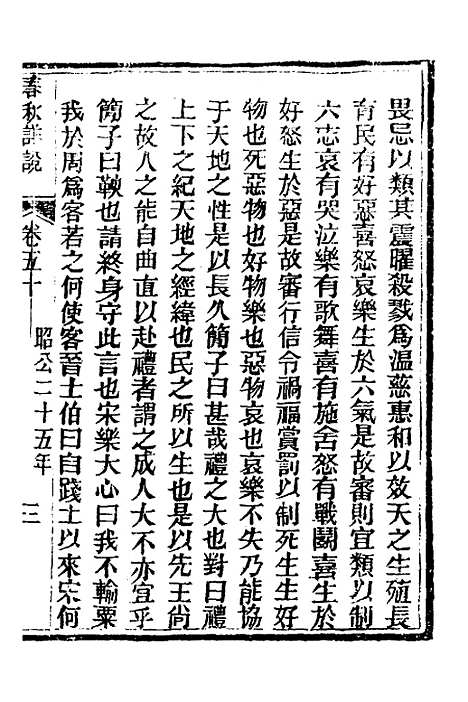 畏忌以類其震曜殺戮為溫慈惠和以效天之生殖長
育民有好惡喜怒哀樂生於六氣是故審則宜類以制
六志哀有哭泣樂有歌舞喜有施舍怒有戰鬬喜生於
好怒生於惡是故審行信令禍福賞罰以制死生生好
物也死惡物也好物樂也惡物哀也哀樂不失乃能協
于天地之性是以長久簡子曰甚哉禮之大也對曰禮
上下之紀天地之經緯也民之所以生也是以先王尚
之故人之能自曲直以赴禮者謂之成人大不亦宜乎
簡子曰鞅也請終身守此言也宋樂大心曰我不輸粟
我於周為客若之何使客晉士伯曰自踐土以來宋何
春秋詳說 卷五十 昭公二十五年 三